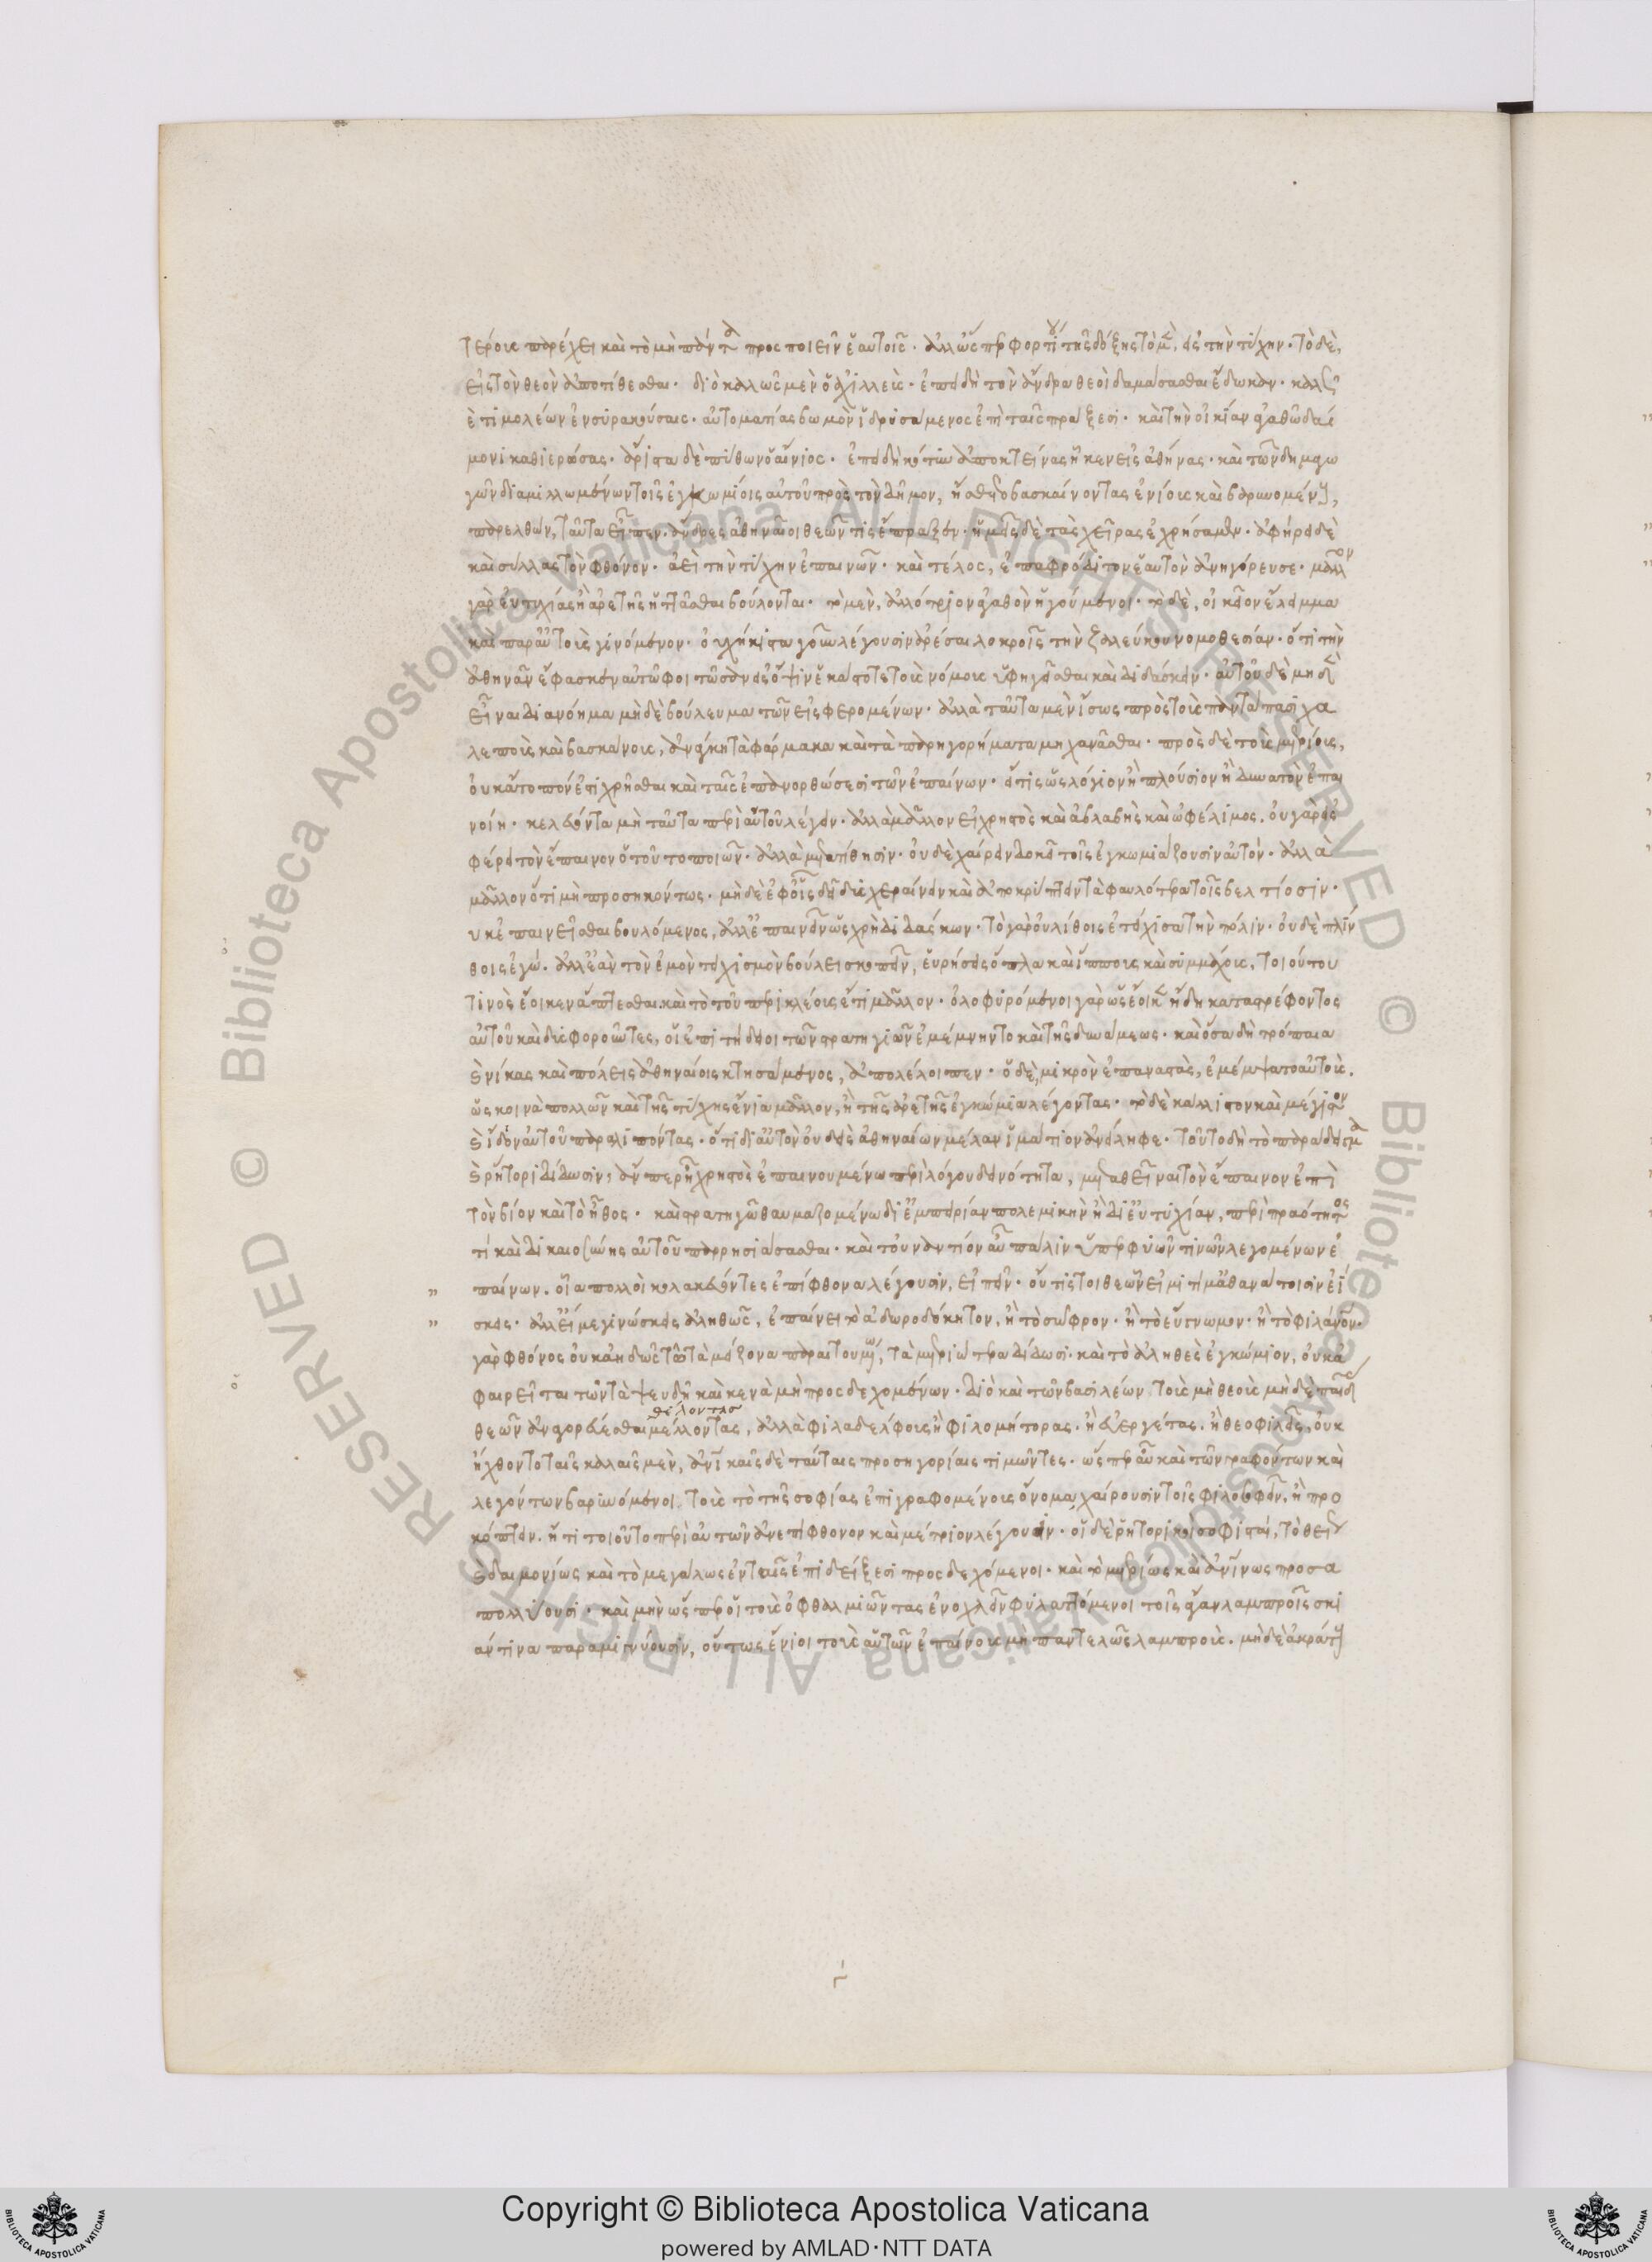 τέροις παρέχει καὶ τὸ μὴ πάντα προσποιεῖν ἑαυτοῖς· ἀλλ' ὥσπερ φορτίου τῆς δόξης τὸ μὲν, εἰς τὴν τύχην. τὸ δὲ,
εἰς τὸν θεὸν ἀποτίθεσθαι· διὸ καλῶς μὲν ὁ ἀχιλλεὺς· ἐπειδὴ τὸν ἄνδρα θεοὶ δαμάσασθαι ἔδωκαν· καλῶς
δὲ τιμολέων ἐν συρακούσαις· αὐτοματίας βωμὸν ἱδρυσάμενος ἐπὶ ταῖς πράξεσι· καὶ τὴν οἰκίαν ἀγαθῶ δαί
μονι καθιερώσας· ἄριστα δὲ πύθων ὁ αἴνιος· ἐπειδὴ κότυν ἀποκτείνας ἧκεν εἰς ἀθήνας· καὶ τῶν δημαγω
γῶν διαμιλλωμένων τοῖς ἐγκωμίοις αὐτοῦ πρὸς τὸν δῆμον, ἤσθετο βασκαίνοντας ἐνίους καὶ βαρυνομένους,
παρελθὼν, ταῦτα εἶπεν. ἄνδρες ἀθηναῖοι θεῶν τις ἔπραξεν· ἡμᾶς δὲ τὰς χεῖρας ἐχρήσαμεν· ἀφήρει δὲ
καὶ σύλλας τὸν φθόνον· ἀεὶ τὴν τύχην ἐπαινῶν· καὶ τέλος, ἐπαφρόδιτον ἑαυτὸν ἀνηγόρευσε· μᾶλλον
γὰρ εὐτυχίας ἢ ἀρετῆς ἡττᾶσθαι βούλονται· τὸ μὲν, ἀλλότριον ἀγαθὸν ἡγούμενοι· τὸ δὲ, οἰκεῖον ἔλειμμα
καὶ παρ' αὐτοὺς γινόμενον· οὐχ ἥκιστα γοῦν λέγουσιν ἀρέσαι λοκροῖς τὴν ζαλεύκου νομοθεσίαν· ὅτι τὴν
ἀθηνᾶν ἔφασκεν αὐτῶ φοιτῶσαν εἰς ὄψιν ἑκάστοτε τοὺς νόμους ὑφηγεῖσθαι καὶ διδάσκειν· αὐτοῦ δὲ μηδὲν
εἶναι διανόημα μὴδὲ βούλευμα τῶν εἰσφερομένων· ἀλλὰ ταῦτα μὲν ἴσως πρὸς τοὺς παντάπασι χα
λεποὺς καὶ βασκάνους, ἀνάγκη τὰ φάρμακα καὶ τὰ παρηγορήματα μηχανᾶσθαι· πρὸς δὲ τοὺς μετρίους,
οὐκ ἄτοπόν ἐστι χρῆσθαι καὶ ταῖς ἐπανορθώσεσι τῶν ἐπαίνων· εἴ τις ὡς λόγιον ἢ πλούσιον ἢ δυνατὸν ἐπαι
νοίη· κελεύοντα μὴ ταῦτα περὶ αὐτοῦ λέγειν· ἀλλὰ μᾶλλον εἰ χρηστὸς καὶ ἀβλαβὴς καὶ ὠφέλιμος. οὐ γὰρ εἰσ
φέρει τὸν ἔπαινον ὁ τοῦτο ποιῶν· ἀλλὰ μετατίθησιν· οὐδὲ χαίρειν δοκεῖ τοῖς ἐγκωμιάζουσιν αὐτὸν· ἀλλὰ
μᾶλλον ὅτι μὴ προσηκόντως· μὴδὲ ἐφ' οἷς δεῖ δυσχεραίνειν καὶ ἀποκρύπτειν τὰ φαυλότερα τοῖς βελτίοσιν·
οὐκ ἐπαινεῖσθαι βουλόμενος, ἀλλ' ἐπαινεῖν ὡς χρὴ διδάσκων· τὸ γὰρ οὐ λίθοις ἐτείχισα τὴν πόλιν· οὐδὲ πλίν
θοις ἐγώ· ἀλλ' ἐὰν τὸν ἐμὸν τειχισμὸν βούλει σκοπεῖν, εὑρήσεις ὅπλα καὶ ἵππους καὶ συμμάχους, τοιούτου
τινὸς ἔοικεν ἅπτεσθαι. καὶ τὸ τοῦ περικλέους ἔτι μᾶλλον· ὀλοφυρόμενοι γὰρ ὡς ἔοικεν ἤδη καταστρέφοντος
αὐτοῦ καὶ δυσφοροῦντες, οἱ ἐπιτήδειοι τῶν στρατηγιῶν ἐμέμνηντο καὶ τῆς δυνάμεως· καὶ ὅσα δὴ τρόπαια
καὶ νίκας καὶ πόλεις ἀθηναίοις κτησάμενος, ἀπολέλοιπεν· ὁ δὲ, μικρὸν ἐπαναστὰς, ἐμέμψατο αὐτοὺς.
ὡς κοινὰ πολλῶν καὶ τῆς τύχης ἔνια μᾶλλον, ἢ τῆς ἀρετῆς ἐγκώμια λέγοντας· τὸ δὲ κάλλιστον καὶ μέγιστον
καὶ ἴδιον αὐτοῦ παραλιπόντας· ὅτι δι' αὐτὸν οὐδεὶς ἀθηναίων μέλαν ἱμάτιον ἀνείληφε· τοῦτο δὴ τὸ παράδειγμα
καὶ ῥήτορι δίδωσιν, ἄνπερ ἦ χρηστὸς ἐπαινουμένω περὶ λόγου δεινότητα, μεταθεῖναι τὸν ἔπαινον ἐπὶ
τὸν βίον καὶ τὸ ἦθος· καὶ στρατηγῶ θαυμαζομένω δι' ἐμπειρίαν πολεμικὴν ἢ δι' εὐτυχίαν, περὶ πραότητος
τι καὶ δικαιοσύνης αὑτοῦ παρρησιάσασθαι· καὶ τοὐναντίον αὖ πάλιν ὑπερφυῶν τινῶν λεγομένων ἐ
παίνων. οἷα πολλοὶ κολακεύοντες ἐπίφθονα λέγουσιν, εἰπεῖν· οὔ τίς τοι θεῶν εἰμι τί μ' ἀθανάτοισιν ἐΐ
σκεις· ἀλλ' εἴ με γινώσκεις ἀληθῶς, ἐπαίνει τὸ ἀδωροδόκητον, ἢ τὸ σῶφρον· ἢ τὸ εὔγνωμον· ἢ τὸ φιλάνθρωπον·
γὰρ φθόνος οὐκ ἀηδῶς τῶ τὰ μείζονα παραιτουμένω, τὰ μετριώτερα δίδωσι· καὶ τὸ ἀληθὲς ἐγκώμιον, οὐκ ἀ
φαιρεῖται τῶν τὰ ψευδῆ καὶ κενὰ μὴ προσδεχομένων· διὸ καὶ τῶν βασιλέων τοὺς μὴ θεοὺς μὴδὲ παῖδας
θέλοντας
θεῶν ἀναγορεύεσθαι μέλλοντας, ἀλλὰ φιλαδέλφους ἢ φιλομήτορας. ἢ εὐεργέτας. ἢ θεοφιλεῖς, οὐκ
ἤχθοντο ταῖς καλαῖς μὲν, ἀνθρωπικαῖς δὲ ταύταις προσηγορίαις τιμῶντες· ὥσπερ αὖ καὶ τῶν γραφόντων καὶ
λεγόντων βαρυνόμενοι τοὺς τὸ τῆς σοφίας ἐπιγραφομένους ὄνομα, χαίρουσιν τοῖς φιλοσοφεῖν. ἢ προ
κόπτειν. ἤ τι τοιοῦτο περὶ αὑτῶν ἀνεπίφθονον καὶ μέτριον λέγουσιν· οἱ δὲ ῥητορικοὶ σοφισταί, τὸ θείως
καὶ δαιμονίως καὶ τὸ μεγάλως ἐν ταῖς ἐπιδείξεσι προσδεχόμενοι· καὶ τὸ μετρίως καὶ ἀνθρωπίνως προσα
πολλύουσι· καὶ μὴν ὥσπερ οἱ τοὺς ὀφθαλμιῶντας ἐνοχλεῖν φυλαττόμενοι τοῖς ἄγαν λαμπροῖς σκι
άν τινα παραμιγνύουσιν, οὕτως ἔνιοι τοὺς αὑτῶν ἐπαίνους μὴ παντελῶς λαμπροὺς. μὴδὲ ἀκράτους
© Biblioteca Apostolica Vaticana ALL RIGHTS RESERVED © Biblioteca Apostolica Vaticana ALL RIGHTS RESERVED
Copyright © Biblioteca Apostolica Vaticana
powered by AMLAD·NTT DATA
BIBLIOTECA APOSTOLICA VATICANA
BIBLIOTECA APOSTOLICA VATICANA